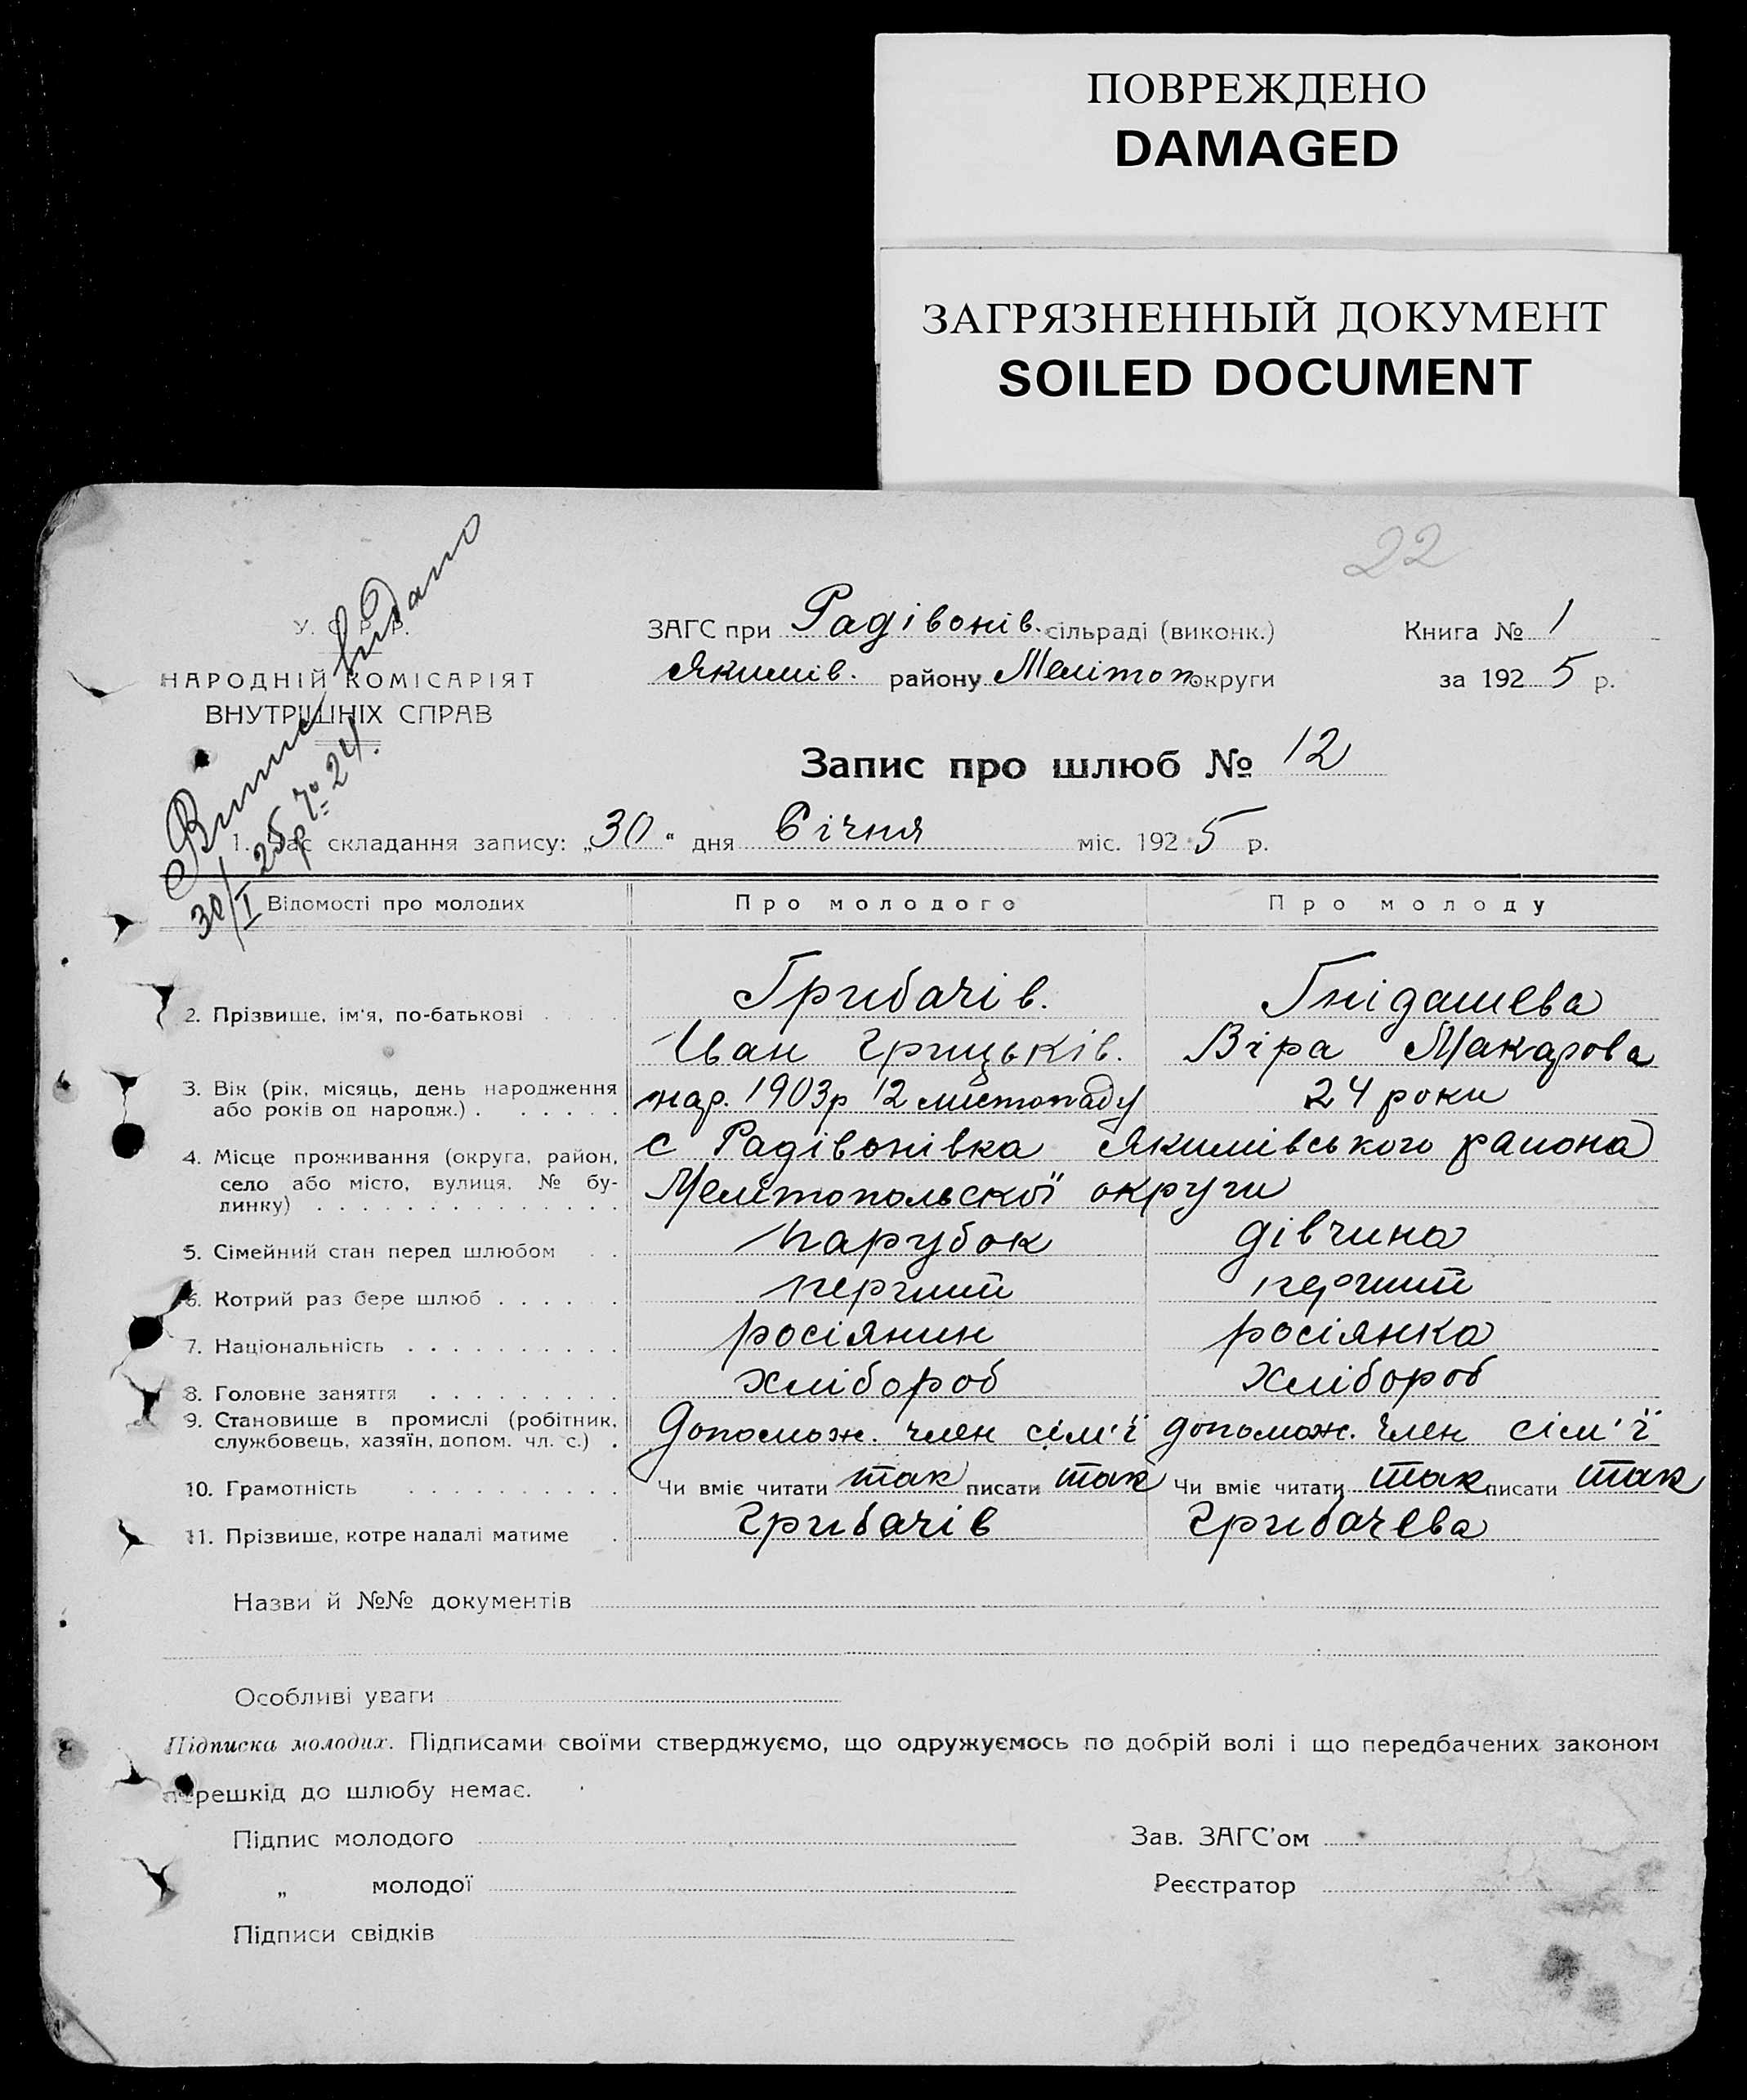 ПОВРЕЖДЕНО
DAMAGED
ЗАГРЯЗНЕННЫЙ ДОКУМЕНТ
SOILED DOCUMENT
22
У. С. Р. Р.
НАРОДНІЙ КОМІСАРІЯТ
ВНУТРІШНІХ СПРАВ
Видано
30/I 25р № 24.
ЗАГС при Радівонів. сільраді (виконк.)
Якимів. району Мелітоп округи
Книга № 1
за 1925 р.
Запис про шлюб № 12
1. Час складання запису: „30“ дня Січня міс. 1925 р.
Відомості про молодих Про молодого Про молоду
2. Прізвище, ім'я, по-батькові Грибачів. Гнідашева
Іван Грицьків. Віра Макарова
3. Вік (рік, місяць, день народження або років од народж.) нар. 1903р 12 листопаду 24 роки
4. Місце проживання (округа, район, село або місто, вулиця, № будинку) с Радівонівка Якимівського района
Мелітопольскої округи
5. Сімейний стан перед шлюбом парубок дівчина
6. Котрий раз бере шлюб перший перший
7. Національність росіянин росіянка
8. Головне заняття хлібороб хлібороб
9. Становище в промислі (робітник, службовець, хазяїн, допом. чл. с.) Допомож. член сім'ї допомож. член сім'ї
10. Грамотність Чи вміє читати так писати так Чи вміє читати так писати так
11. Прізвище, котре надалі матиме Грибачів Грибачева
Назви й №№ документів
Особливі уваги
Підписка молодих. Підписами своїми стверджуємо, що одружуємось по добрій волі і що передбачених законом
перешкід до шлюбу немає.
Підпис молодого Зав. ЗАГС'ом
„ молодої Реєстратор
Підписи свідків